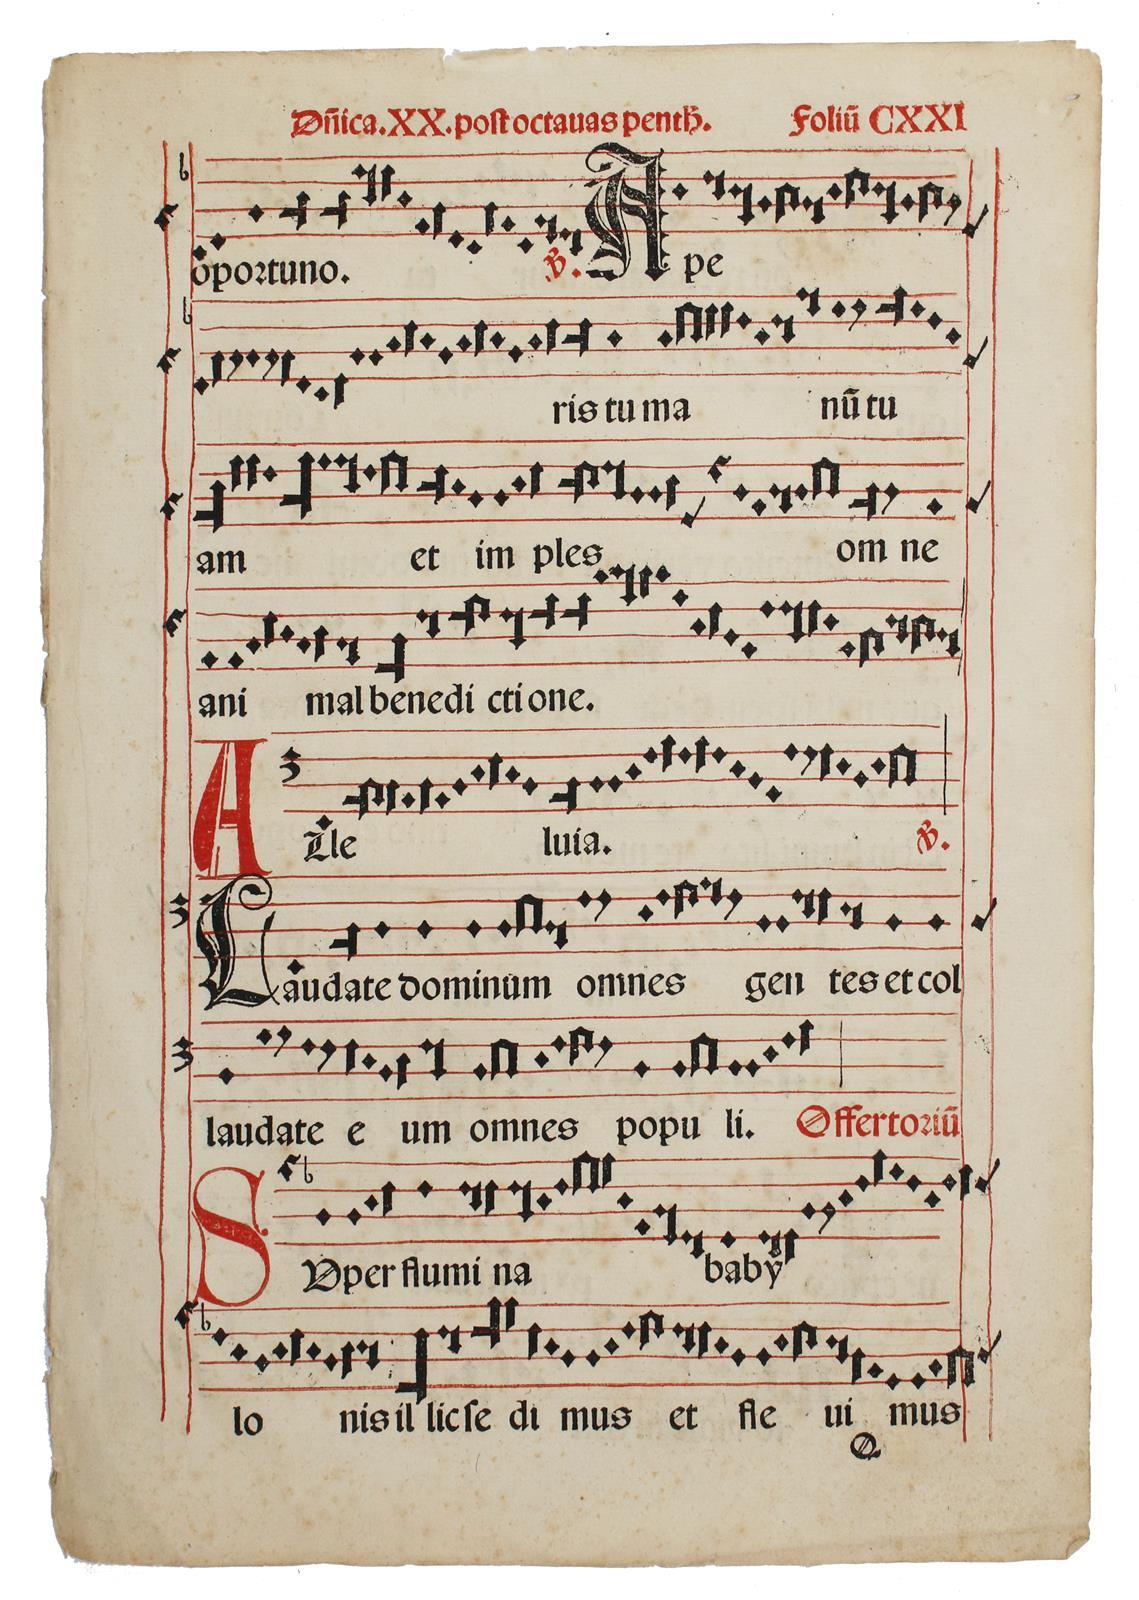 Dñica.XX.post octauas penth. Foliũ CXXI
oportuno. ℣. Ape
ris tu ma nũ tu
am et im ples om ne
ani mal benedi cti one.
Alle luia. ℣.
Laudate dominum omnes gen tes et col
laudate e um omnes popu li. Offertoriũ
SVper flumi na baby
lo nis il lic se di mus et fle ui mus
Q